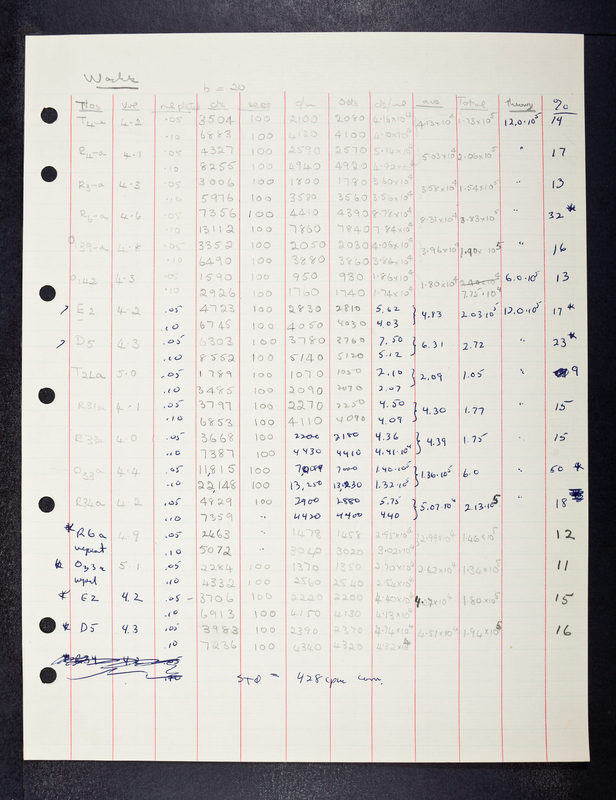 b = 20
vol ml plated cts secs c/m ave Total theory %
T4-a 4.2 .05 3504 100 2100 2080 4.16x10⁴ 4.13x10⁴ 1.73x10⁵ 12.0.10⁵ 14
.10 6883 100 4120 4100 4.10x10⁴
R4-a 4.1 .05 4327 100 2590 2570 5.14x10⁴ 5.03x10⁴ 2.06x10⁵ " 17
.10 8255 100 4940 4920 4.92x10⁴
R5-a 4.3 .05 3006 100 1800 1780 3.60x10⁴ 3.58x10⁴ 1.54x10⁵ " 13
.10 5976 100 3580 3560 3.56x10⁴
R6-a 4.6 .05 7356 100 4410 4390 8.78x10⁴ 8.31x10⁴ 3.83x10⁵ " 32*
.10 13112 100 7860 7840 7.84x10⁴
O39-a 4.8 .05 3352 100 2050 2030 4.06x10⁴ 3.96x10⁴ 1.90x10⁵ " 16
.10 6490 100 3880 3860 3.86x10⁴
O42 4.3 .05 1590 100 950 930 1.86x10⁴ 1.80x10⁴ 6.0.10⁵ 13
.10 2926 100 1760 1740 1.74x10⁴ 7.75.10⁴
E2 4.2 .05 4723 100 2830 2810 5.62 } 4.83 2.03.10⁵ 12.0.10⁵ 17*
.10 6745 100 4050 4030 4.03
D5 4.3 .05 6303 100 3780 3760 7.50 } 6.31 2.72 " 23*
.10 8552 100 5140 5120 5.12
T21a 5.0 .05 1789 100 1070 1050 2.10 } 2.09 1.05 " 9
.10 3485 100 2090 2070 2.07
R31a 4.1 .05 3797 100 2270 2250 4.50 } 4.30 1.77 " 15
.10 6853 100 4110 4090 4.09
R33a 4.0 .05 3668 100 2200 2180 4.36 } 4.39 1.75 " 15
.10 7387 100 4430 4410 4.41.10⁴
O33a 4.4 .05 11,815 100 7000 1.40.10⁵ } 1.36.10⁵ 6.0 " 50*
.10 22,148 100 13,250 13,230 1.32.10⁵
R34a 4.2 .05 4829 100 2900 2880 5.75 } 5.07.10⁴ 2.13.10⁵ " 18
.10 7359 " 4420 4400 4.40
* R6a 4.9 .05 2463 " 1478 1458 2.95x10⁴ 2.99x10⁴ 1.46x10⁵ 12
repeat .10 5072 " 3040 3020 3.02x10⁴
* O33a 5.1 .05 2284 100 1370 1350 2.70x10⁴ 2.62x10⁴ 1.34x10⁵ 11
repeat .10 4332 100 2560 2540 2.54x10⁴
* E2 4.2 .05 - 3706 100 2220 2200 4.40x10⁴ 1.80x10⁵ 15
.10 6913 100 4150 4130 4.13x10⁴
* D5 4.3 .05 3983 100 2390 2370 4.74x10⁴ 4.51x10⁴ 1.94x10⁵ 16
.10 7236 100 4340 4320 4.32x10⁴
STD = 428 cpm